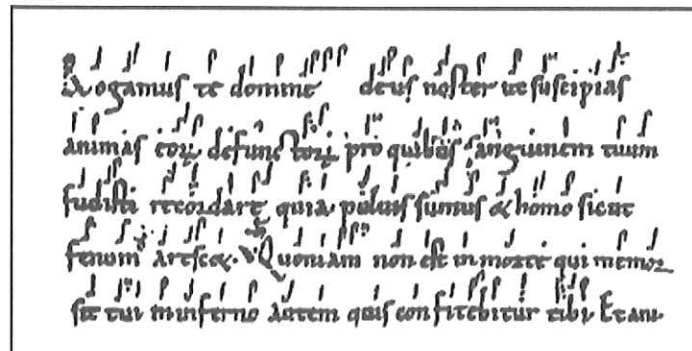 Rogamus te domine deus noster ut suscipias
animas eoꝝ defunctoꝝ pro quibus sanguinem tuum
fudisti recordare quia puluis sumus & homo sicut
fenum arescæ. Quoniam non est in morte qui memor
sit tui in inferno autem quis confitebitur tibi Et ani